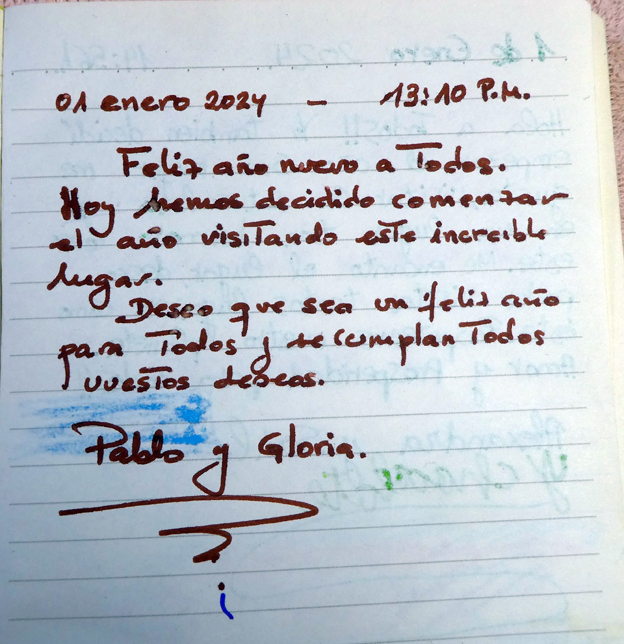 01 enero 2024 - 13:10 P.M.
Feliz año nuevo a Todos.
Hoy hemos decidido comenzar
el año visitando este increible
lugar.
Deseo que sea un feliz año
para Todos y se cumplan Todos
vuestos deseos.
Pablo y Gloria.